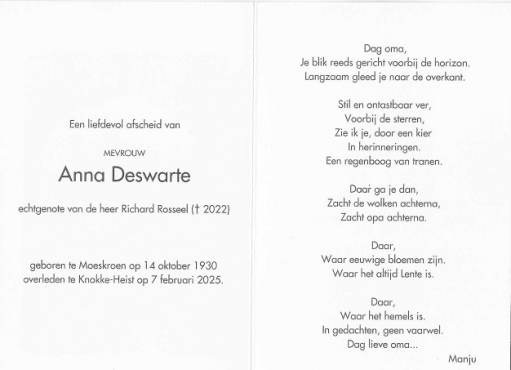 Een liefdevol afscheid van
MEVROUW
Anna Deswarte
echtgenote van de heer Richard Rosseel († 2022)
geboren te Moeskroen op 14 oktober 1930
overleden te Knokke-Heist op 7 februari 2025.
Dag oma,
Je blik reeds gericht voorbij de horizon.
Langzaam gleed je naar de overkant.
Stil en ontastbaar ver,
Voorbij de sterren,
Zie ik je, door een kier
In herinneringen.
Een regenboog van tranen.
Daar ga je dan,
Zacht de wolken achterna,
Zacht opa achterna.
Daar,
Waar eeuwige bloemen zijn.
Waar het altijd Lente is.
Daar,
Waar het hemels is.
In gedachten, geen vaarwel.
Dag lieve oma...
Manju